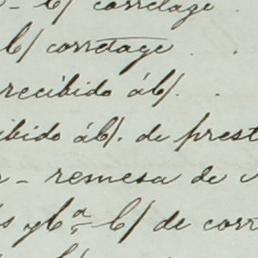 b/ corretage
b/ corretage
recibido áb/.
ibido áb/. de prest
- remesa de
s y b.ª b/ de corr